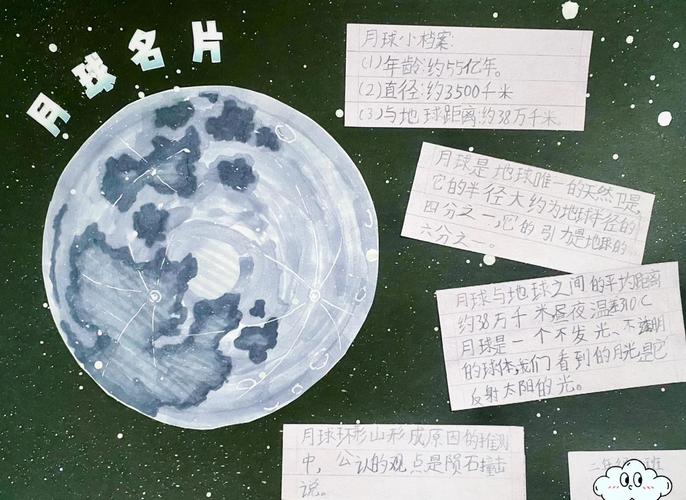 月球名片
月球小档案:
(1)年龄:约55亿年。
(2)直径:约3500千米
(3)与地球距离:约38万千米
月球是地球唯一的天然卫星,
它的半径大约为地球半径的
四分之一,它的引力是地球的
六分之一。
月球与地球之间的平均距离
约38万千米昼夜温差310C
月球是一个不发光、不透明
的球体,我们看到的月光是它
反射太阳的光。
月球环形山形成原因的推测
中,公认的观点是陨石撞击
说。
二年级 班